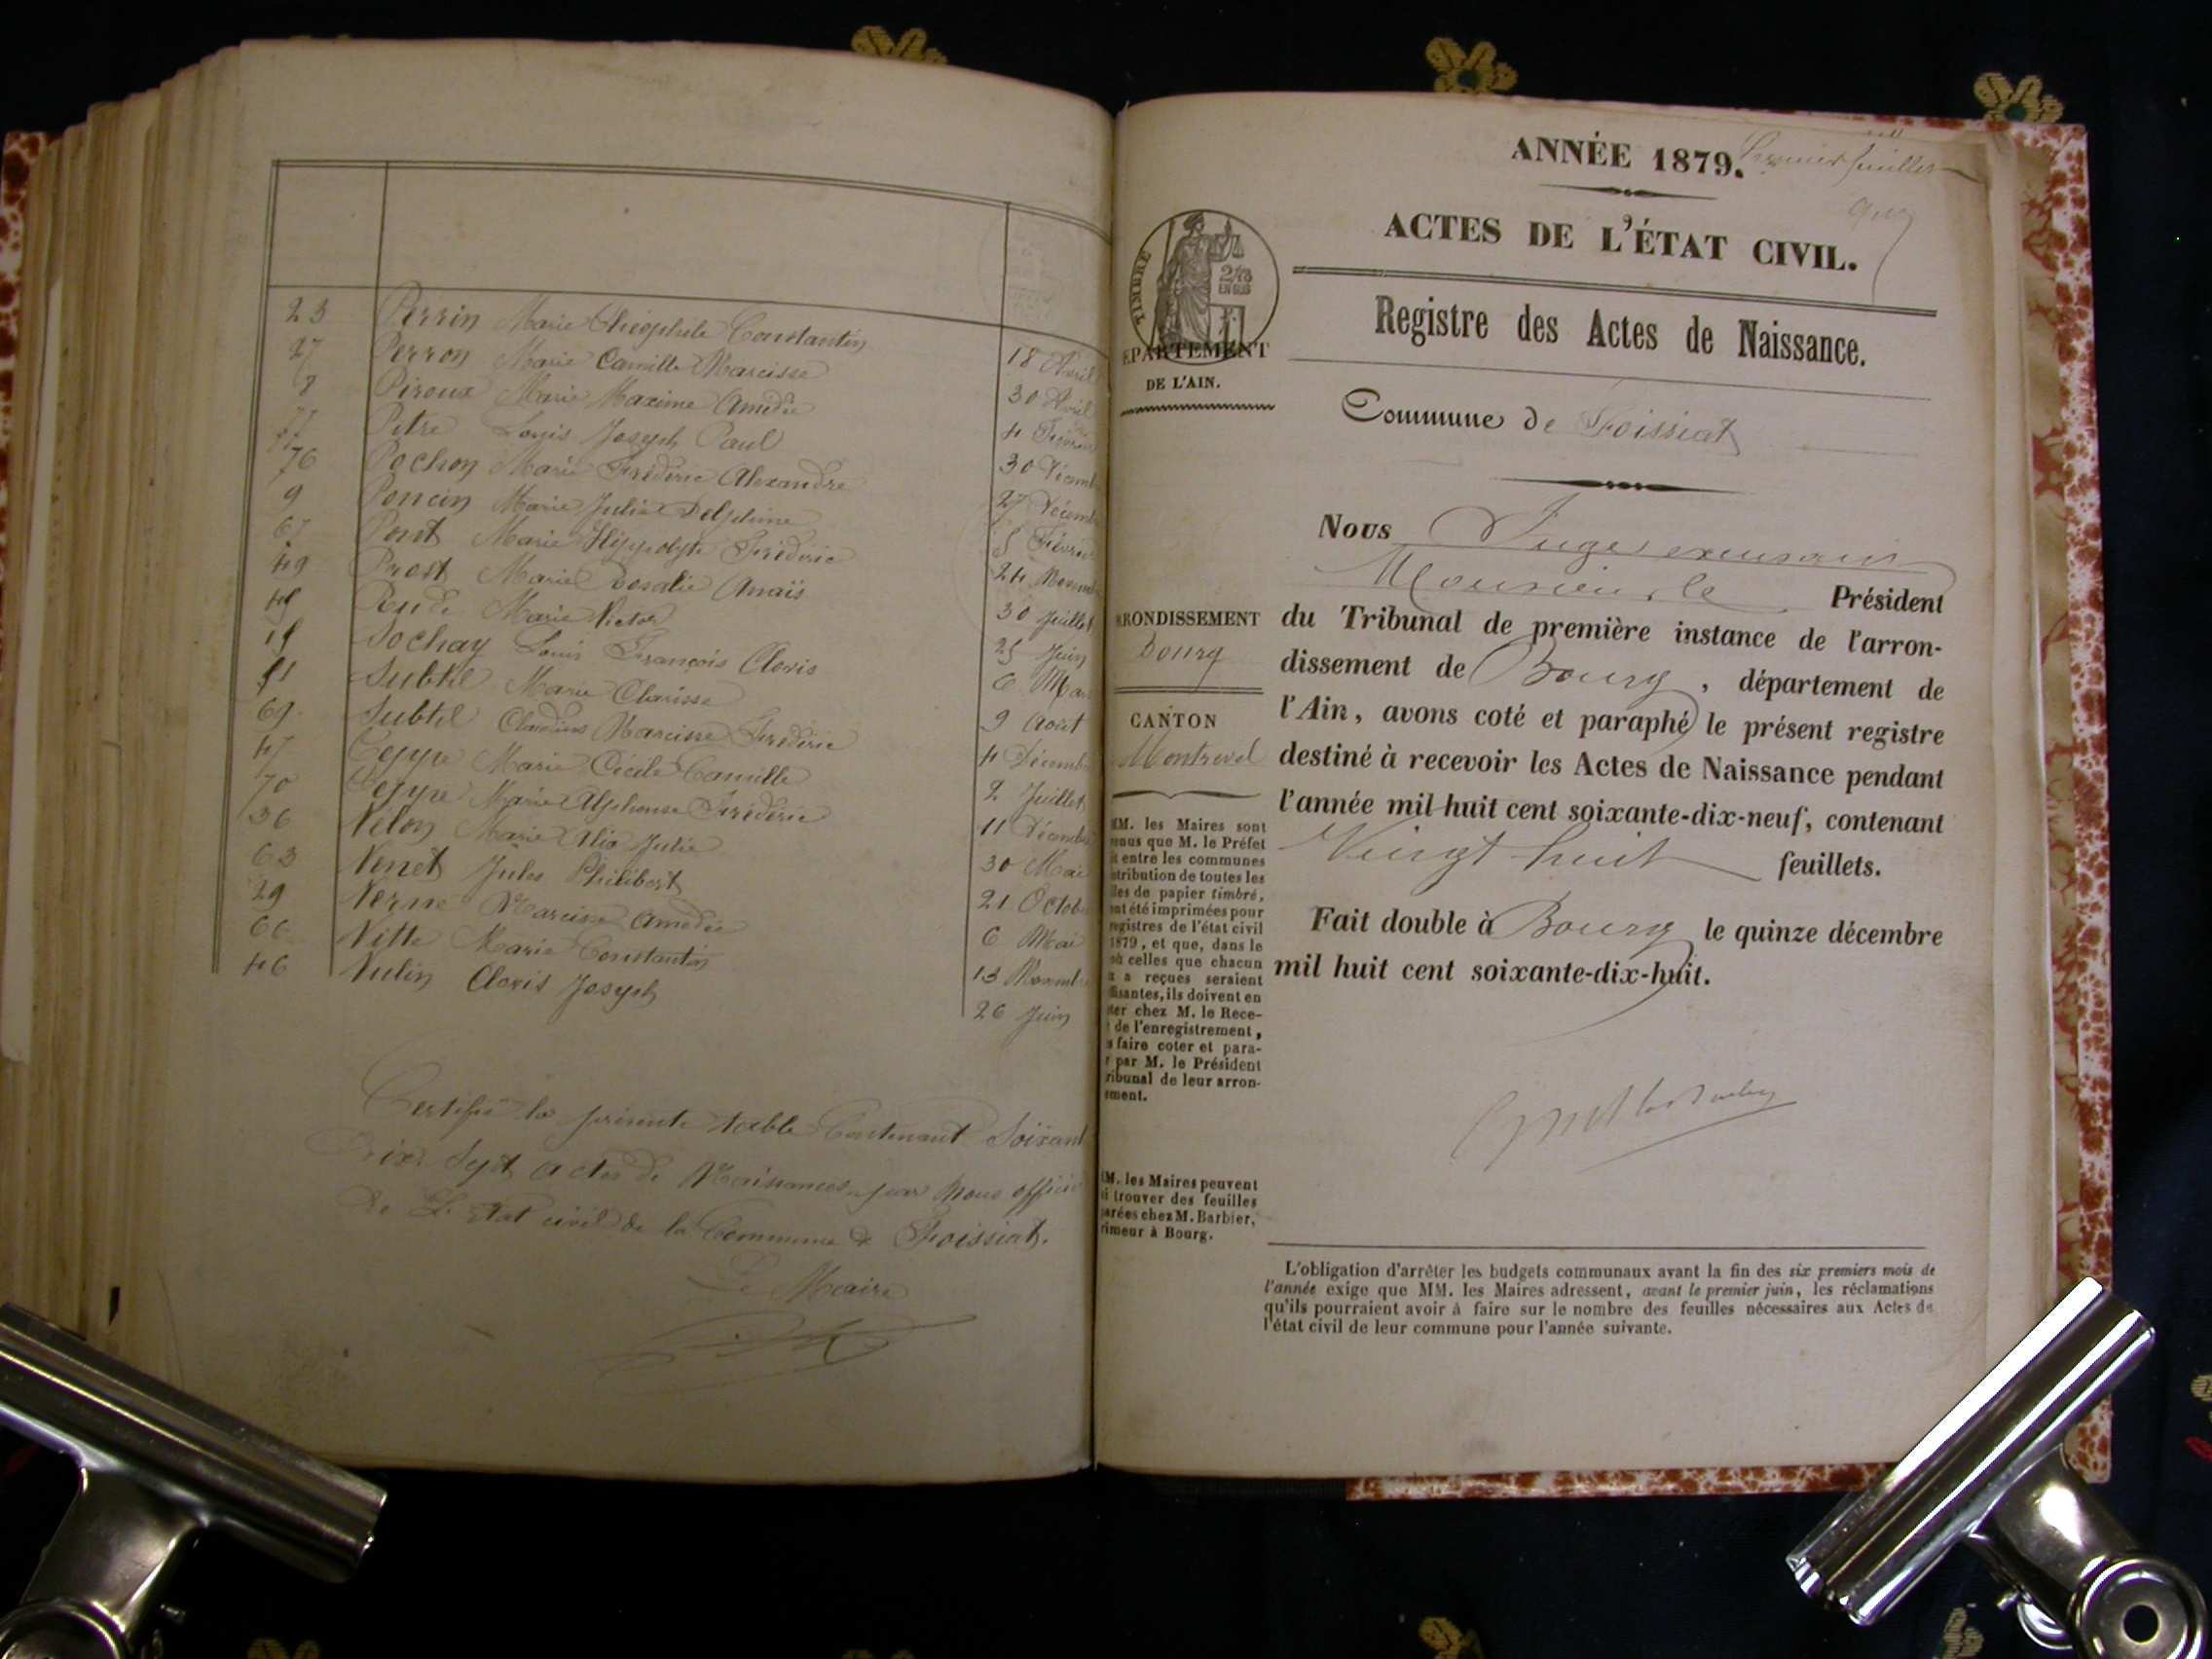 23 Perrin Marie Théophile Constantin 18 Avril
27 Perron Marie Camille Narcisse 30 Avril
8 Piroux Marie Maxime Amédée 4
77 Pitre Louis Joseph Paul 30 Décemb
76 Pochon Marie Frédéric Alexandre 27 Décemb
9 Poncin Marie Julie Delphine 5 Févrie
67 Pont Marie Hippolyte Frédéric 24 Novemb
49 Prost Marie Rosalie Anaïs 30 Juillet
45 Marie Victor 25 Juin
15 Sochay Louis François Clovis 6 Mar
51 Subtil Marie Clarisse 9 Août
69 Subtil Claudius Narcisse Frédéric 4 Décemb
47 Teppe Marie Cécile Camille 2 Juillet
70 Teppe Marie Alphonse Frédéric 11 Décemb
36 Velon Marie Julie 30 Mai
63 Venet Jules Philibert 21 Octob
29 Verne Narcisse Amédée 6 Mai
66 Vitte Marie Constantin 13 Novemb
46 Vulin Clovis Joseph 26 Juin
Certifié la présente table Contenant Soixant
Dix Sept actes de Naissances par Nous officie
de L'Etat civil de la Commune de Foissiat.
Le Maire
ANNÉE 1879. Premier feuillet
ACTES DE L'ÉTAT CIVIL.
TIMBRE
EPARTEMENT
DE L'AIN.
Registre des Actes de Naissance.
Commune de Foissiat
Nous Juge
Monsieur le Président
du Tribunal de première instance de l'arron-
dissement de Bourg, département de
l'Ain, avons coté et paraphé le présent registre
destiné à recevoir les Actes de Naissance pendant
l'année mil huit cent soixante-dix-neuf, contenant
Vingt huit feuillets.
Fait double à Bourg le quinze décembre
mil huit cent soixante-dix-huit.
RONDISSEMENT
Bourg
CANTON
Montrevel
MM. les Maires sont
nus que M. le Préfet
entre les communes
stribution de toutes les
lles de papier timbré,
nt été imprimées pour
registres de l'état civil
1879, et que, dans le
où celles que chacun
x a reçues seraient
fisantes, ils doivent en
ter chez M. le Rece-
de l'enregistrement,
s faire coter et para-
r par M. le Président
ribunal de leur arron-
ement.
M. les Maires peuvent
i trouver des feuilles
arées chez M. Barbier,
rimeur à Bourg.
L'obligation d'arrêter les budgets communaux avant la fin des six premiers mois de
l'année exige que MM. les Maires adressent, avant le premier juin, les réclamations
qu'ils pourraient avoir à faire sur le nombre des feuilles nécessaires aux Actes de
l'état civil de leur commune pour l'année suivante.